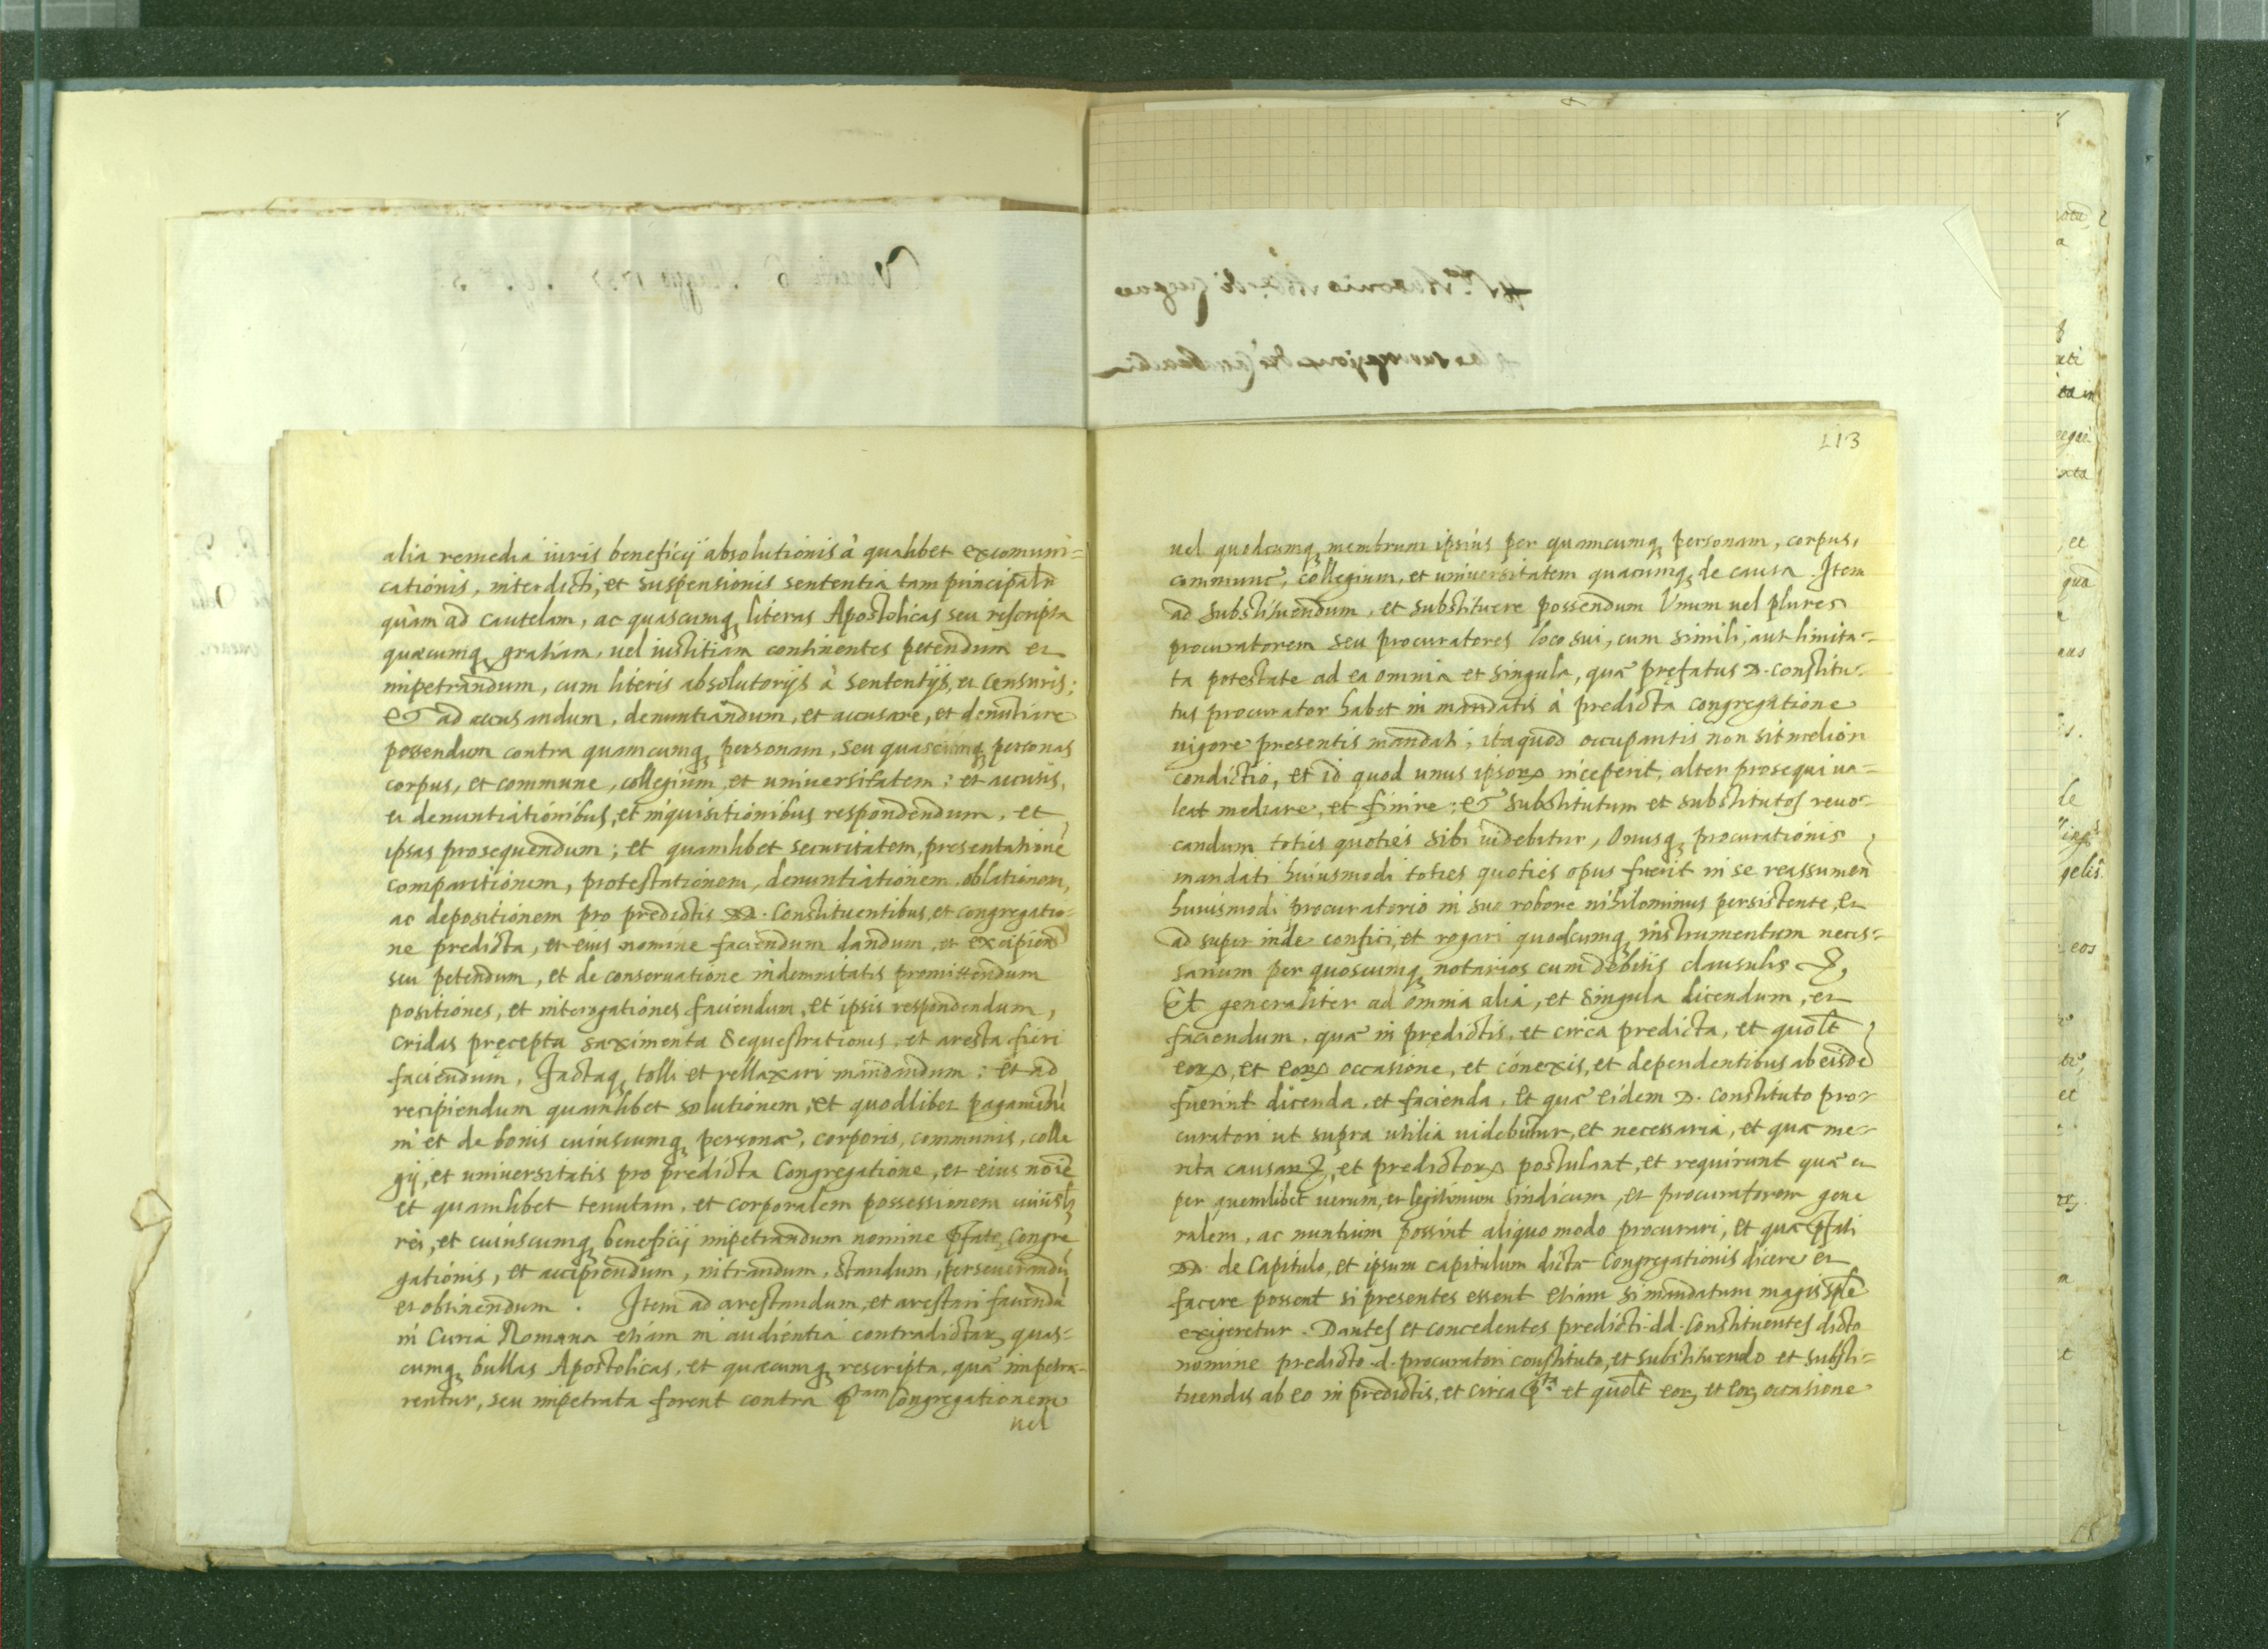 alia remedia iuris beneficij absolutionis à qualibet excomuni=
cationis, interdicti, et suspensionis sententia tam principalr
quàm ad cautelam, ac quascumq; literas Apostolicas seu rescripta
quæcumq; gratiam, uel iustitiam continentes petendum et
impetrandum, cum literis absolutorijs à sententijs, et censuris;
Et ad accusandum, denuntiandum, et accusare, et denūtiare
possendum contra quamcumq; personam, seu quascumq; personas
corpus, et commune, collegium, et uniuersitatem; et accusis,
et denuntiationibus, et inquisitionibus respondendum, et
ipsas prosequendum; et quamlibet securitatem, presentationē
comparitionem, protestationem, denuntiationem, oblationem,
ac depositionem pro predictis DD. Constituentibus, et congregatio-
ne predicta, et eius nomine faciendum dandum, et excipiend
seu petendum, et de conseruatione indemnitatis promittendum
positiones, et interogationes faciendum, et ipsis respondendum,
cridas pręcepta saximenta sequestrationes, et aresta fieri
faciendum, factaq; tolli et rellaxari mandandum: et ad
recipiendum quamlibet solutionem, et quodlibet pagamētū
in et de bonis cuiuscumq; personæ, corporis, communis, colle
gij, et uniuersitatis pro predicta Congregatione, et eius noīe
et quamlibet tenutam, et corporalem possessionem cuiuslb;
rei, et cuiuscumq; beneficij impetrandum nomine pfatę Congre
gationis, et accipiendum, intrandum, standum, perseuerandū
et obtinendum. Item ad arestandum, et arestari faciendū
in Curia Romana etiam in audientia contradictar; quas=
cumq; bullas Apostolicas, et quæcumq; rescripta, quæ impetra-
rentur, seu impetrata forent contra p^tam Congregationem
uel
113
uel quodcumq; membrum ipsius per quamcumq; personam, corpus,
commune, collegium, et uniuersitatem quacumq; de causa. Item
ad substituendum, et substituere possendum Unum uel plures
procuratorem seu procuratores loco sui, cum simili, aut limita=
ta potestate ad ea omnia et singula, quæ pręfatus D. constitu-
tus procurator habet in mandatis à predicta congregatione
uigore presentis mandati; itaquod occupantis non sit melior
condictio, et id quod unus ipsorꝝ inceperit, alter prosequi ua=
leat mediare, et finire; Et substitutum et substitutos reuo-
candum toties quoties sibi uidebitur, Onusq; procurationis
mandati huiusmodi toties quoties opus fuerit in se reassumen
huiusmodi procuratorio in suo robore nihilominus persistente, Et
ad super inde confici, et rogari quodcumq; instrumentum neces=
sarium per quoscumq; notarios cum debitis clausulis &,
Et generaliter ad omnia alia, et singula dicendum, et
faciendum, quæ in prędictis, et circa predicta, et quolt
eorꝝ, et eorꝝ occasione, et cōnexis, et dependentibus ab eisdē
fuerint dicenda, et facienda, Et quæ eidem D. constituto pro-
curatori ut supra utilia uidebuntur, et necessaria, et quæ me-
rita causarꝝ, et predictorꝝ postulant, et requirunt quæ et
per quemlibet uerum, et legitimum sindicum, et procuratorem gene
ralem, ac nuntium possint aliquo modo procurari, Et quæ pfati
DD. de Capitulo, et ipsum capitulum dictæ Congregationis dicere et
facere possent si presentes essent etiam si mandatum magis sple
exigeretur. Dantes et concedentes predicti dd. Constituentes dicto
nomine predicto d. procuratori constituto, et substituendo et substi=
tuendis ab eo in predictis, et circa p^ta et quolt eor; et eor; occasione